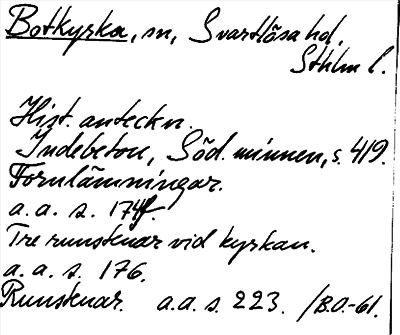 Botkyrka, sn, Svartlösa hd.
Sthlm l.
Hist. anteckn.
Indebetou, Söd. minnen, s. 419.
Fornlämningar.
a. a. s. 174f.
Tre runstenar vid kyrkan.
a. a. s. 176.
Runstenar. a.a. s. 223. /B.O.-61.